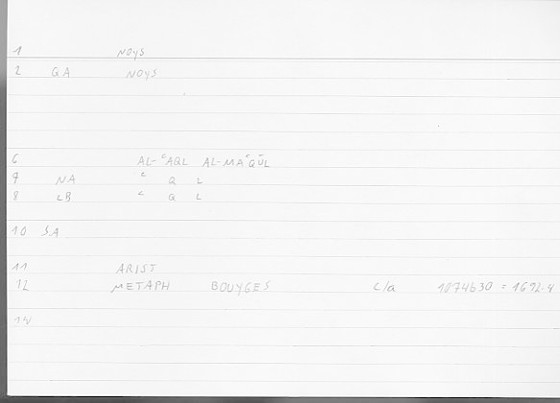 1 NOYS
2 GA NOYS
6 AL-ʿAQL AL-MAʿQŪL
7 NA ʿ Q L
8 LB ʿ Q L
10 SA
11 ARIST
12 METAPH BOUYGES c/a 1074b30 = 1692.4
14